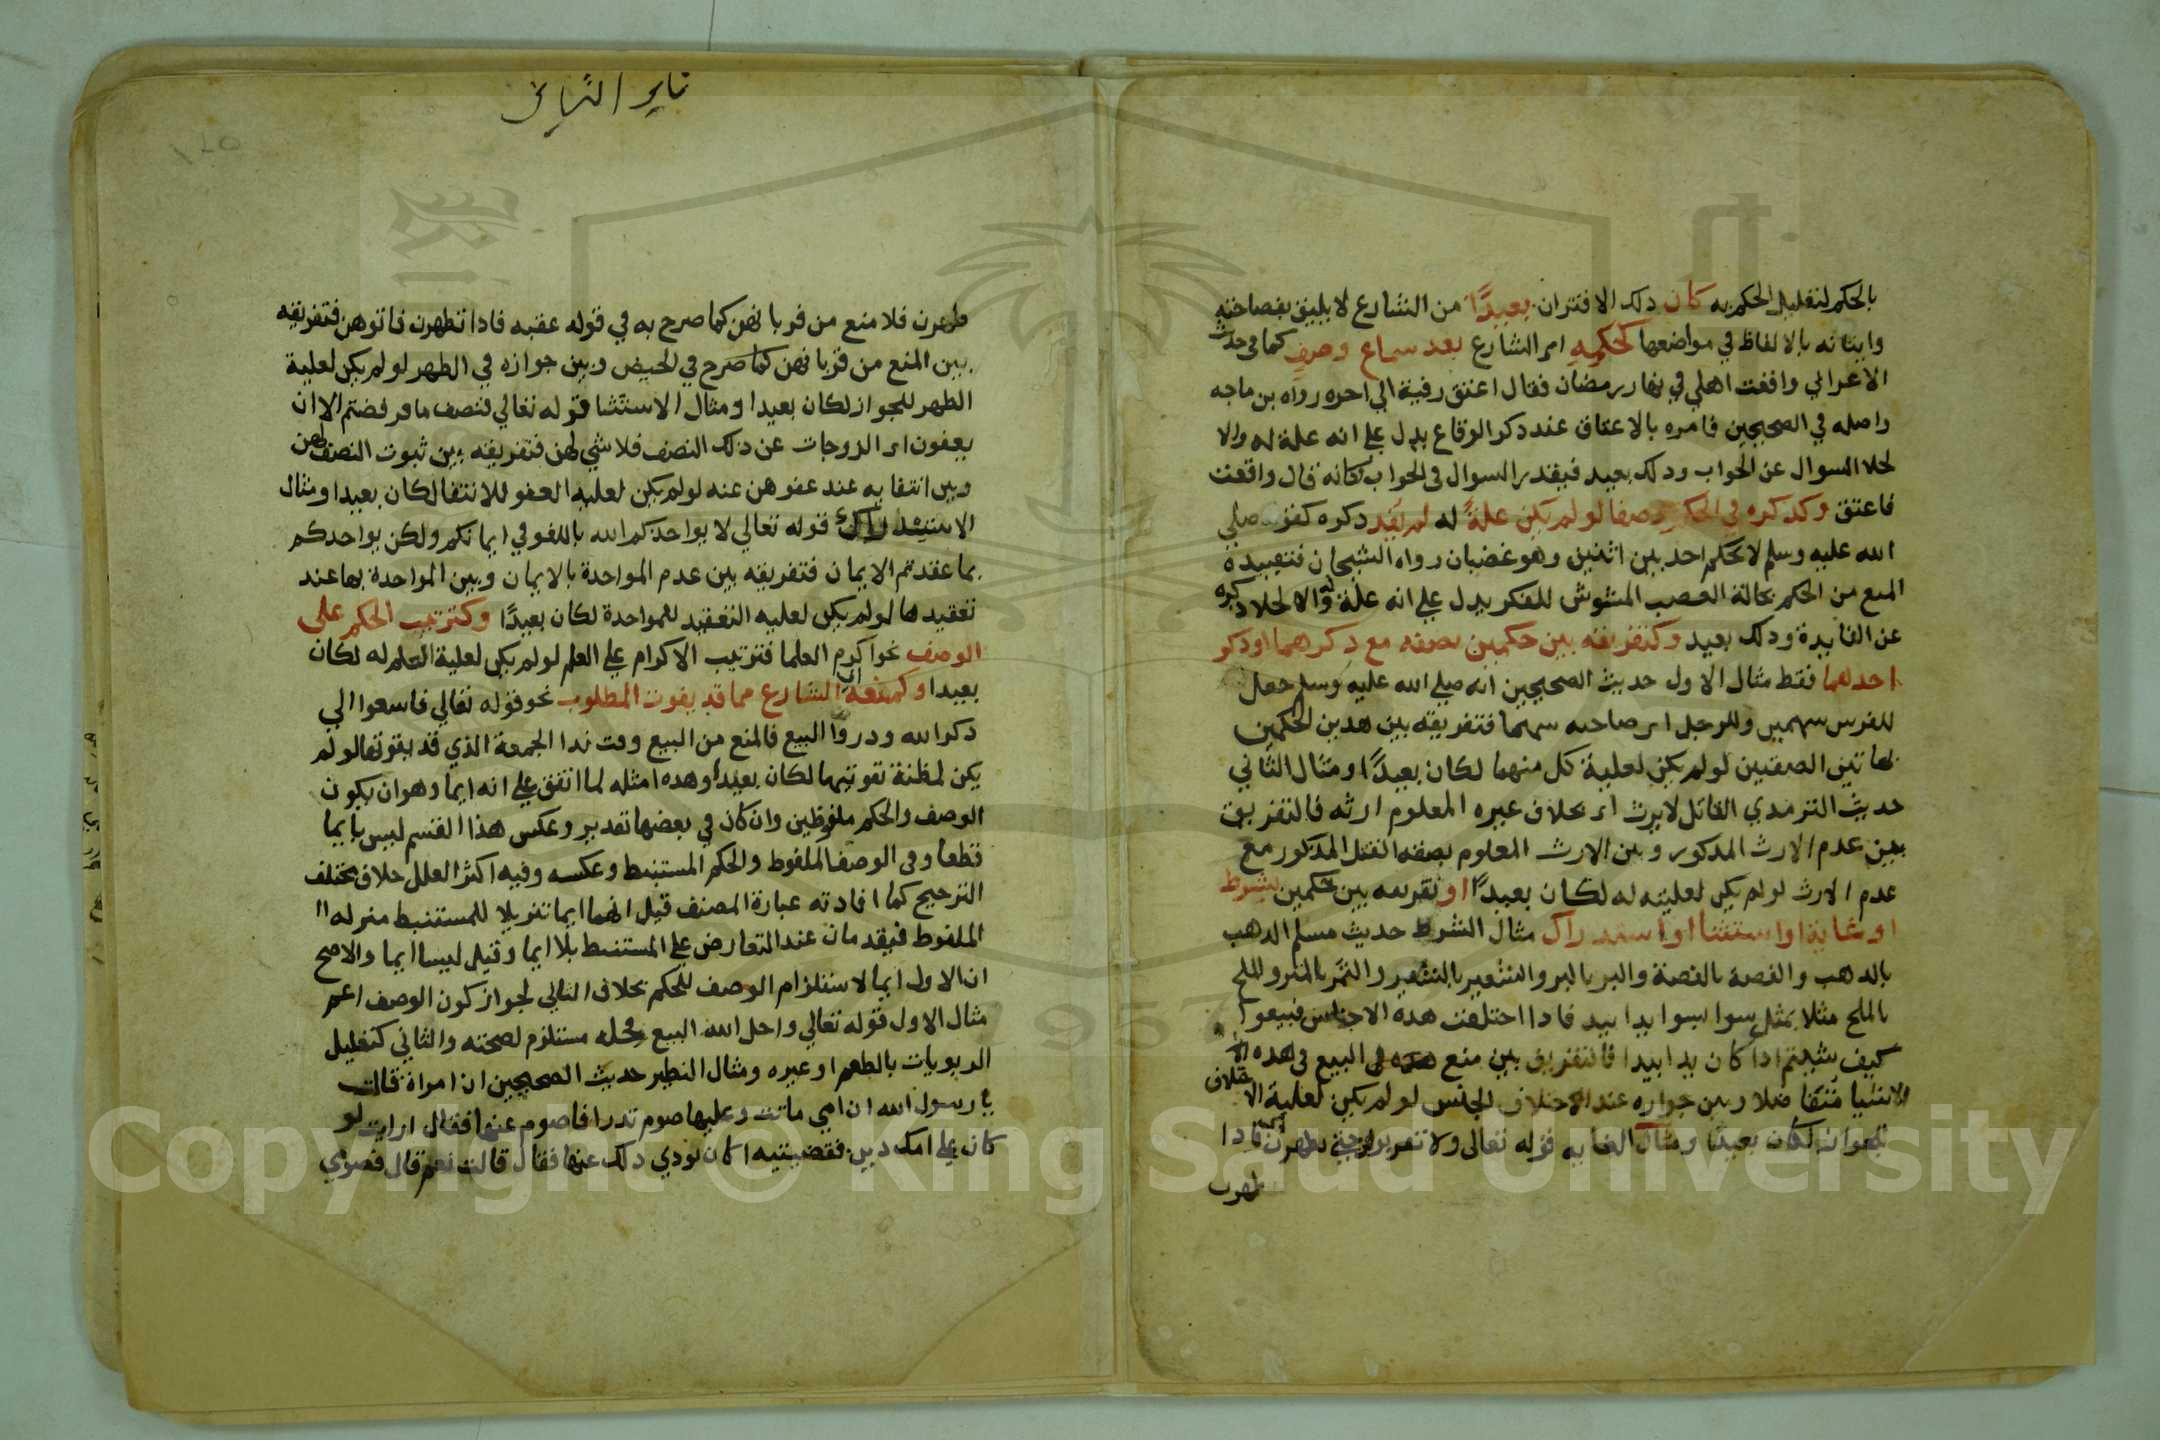 بالحكم لتعليل الحكم به كان ذلك الاقتران بعيدًا من الشارع لا يليق بفصاحته
واتيانه بالالفاظ في مواضعها كحكمه اي الشارع بعد سماع وصف كما في حديث
الاعرابي واقعت اهلي في نهار رمضان فقال اعتق رقبة الي اخره رواه بن ماجه
واصله في الصحيحين فامره بالاعتاق عند ذكر الوقاع يدل علي انه علة له والا
لخلا السوال عن الجواب وذلك بعيد فيقدر السوال في الجواب كانه قال واقعت
فاعتق وكذكره في الحكم وصفا لو لم يكن علة له لم يفد ذكره كقوله صلي
الله عليه وسلم لا يحكم احد بين اثنين وهو غضبان رواه الشيخان فتقييده
المنع من الحكم بحالة الغضب المشوش للفكر يدل علي انه علة له والا لخلا ذكره
عن الفايدة وذلك بعيد وكتفريقه بين حكمين بصفه مع ذكرهما او ذكر
احدهما فقط مثال الاول حديث الصحيحين انه صلي الله عليه وسلم جعل
للفرس سهمين وللرجل اي صاحبه سهما فتفريقه بين هذين الحكمين
بهاتين الصفتين لو لم يكن لعلية كل منهما لكان بعيدًا ومثال الثاني
حديث الترمذي القاتل لا يرث اي بخلاف غيره المعلوم ارثه فالتفريق
بين عدم الارث المذكور وبين الارث المعلوم بصفه القتل المذكور مع
عدم الارث لو لم يكن لعليته له لكان بعيدًا او تفريقه بين حكمين بشرط
او غاية او استثنا او استدراك مثال الشرط حديث مسلم الذهب
بالذهب والفضة بالفضة والبر بالبر والشعير بالشعير والتمر بالتمر والملح
بالملح مثلا بمثل سوا بسوا يدا بيد فاذا اختلفت هذه الاجناس فبيعوا
كيف شيتم اذا كان يدا بيد فالتفريق بين منع البيع في هذه
الاشيا متفاضلا وبين جوازه عند اختلاف الجنس لو لم يكن لعلية الاختلاف
للجواز لكان بعيدًا ومثال الغايه قوله تعالي ولا تقربوهن حتي يطهرن اي فاذا
طهرن
تاير الشرايح
طهرن فلا منع من قربانهن كما صرح به في قوله عقبه فاذا تطهرن فاتوهن فتفريقه
بين المنع من قربانهن كما صرح في الحيض وبين جوازه في الطهر لو لم يكن لعلية
الطهر للجواز لكان بعيدا ومثال الاستثنا قوله تعالي فنصف ما فرضتم الا ان
يعفون اي الزوجات عن ذلك النصف فلا شي لهن فتفريقه بين ثبوت النصف لهن
وبين انتفايه عند عفوهن عنه لو لم يكن لعلية العفو للانتفا لكان بعيدا ومثال
الاستدراك قوله تعالي لا يواخذكم الله باللغو في ايمانكم ولكن يواخذكم
بما عقدتم الايمان فتفريقه بين عدم المواخذة بالايمان وبين المواخذة بها عند
تعقيدها لو لم يكن لعليه التعقيد للمواخذة لكان بعيدًا وكترتيب الحكم على
الوصف نحو اكرم العلما فترتيب الاكرام علي العلم لو لم يكن لعلية العلم له لكان
بعيدا وكمنعه اي الشارع مما قد يفوت المطلوب نحو قوله تعالي فاسعوا الي
ذكر الله وذروا البيع فالمنع من البيع وقت ندا الجمعة الذي قد يفوتها لو لم
يكن لمظنة تفويتها لكان بعيدًا وهذه امثله لما اتفق علي انه ايما وهو ان يكون
الوصف والحكم ملفوظين وان كان في بعضها تقدير وعكس هذا القسم ليس بايما
قطعا وفي الوصف الملفوظ والحكم المستنبط وعكسه وفيه اكثر العلل خلاف مختلف
الترجيح كما افادته عبارة المصنف قيل انهما ايما تنزيلا للمستنبط منزله
الملفوظ فيقدمان عند التعارض علي المستنبط بلا ايما وقيل ليسا ايما والاصح
ان الاول ايما لاستلزام الوصف للحكم بخلاف الثاني لجواز كون الوصف اعم
مثال الاول قوله تعالي واحل الله البيع فحله مستلزم لصحته والثاني كتعليل
الربويات بالطعم او غيره ومثال النظير حديث الصحيحين ان امراة قالت
يا رسول الله ان امي ماتت وعليها صوم نذر افاصوم عنها فقال ارايت لو
كان علي امك دين فقضيتيه اكان يودي ذلك عنها فقال قالت نعم قال فصومي